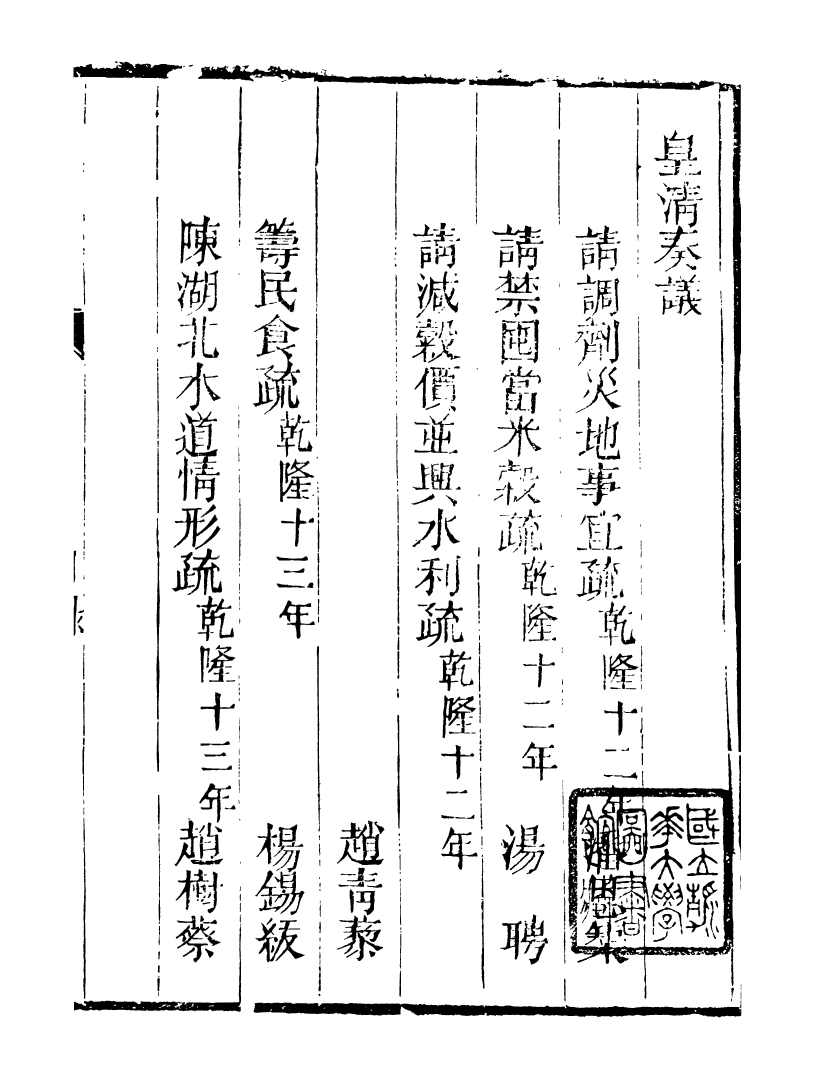 皇清奏議
請調劑災地事宜疏乾隆十二年
請禁囤當米穀疏乾隆十二年 湯聘
請減穀價並興水利疏乾隆十二年
趙青藜
籌民食疏乾隆十三年 楊錫紱
陳湖北水道情形疏乾隆十三年 趙樹蔡
國立
華大學
圖書
館